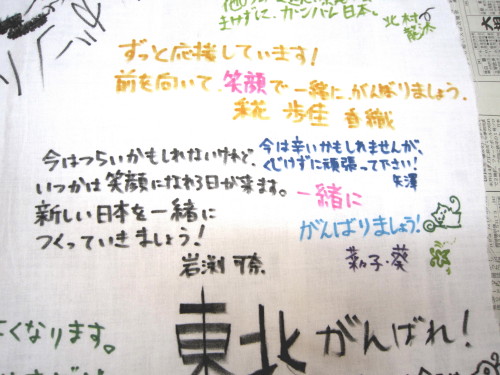 まけずに、ガンバレ日本。
北村
ずっと応援しています!
前を向いて、笑顔で一緒に、がんばりましょう。
彩花 歩佳 香織
今は辛いかもしれませんが、
くじけずに頑張って下さい!
矢澤
今はつらいかもしれないけれど、
いつかは笑顔になれる日が来ます。
新しい日本を一緒に
つくっていきましょう!
岩渕 可奈
一緒に
がんばりましょう!
菜々子・葵
東北がんばれ!
くなります。